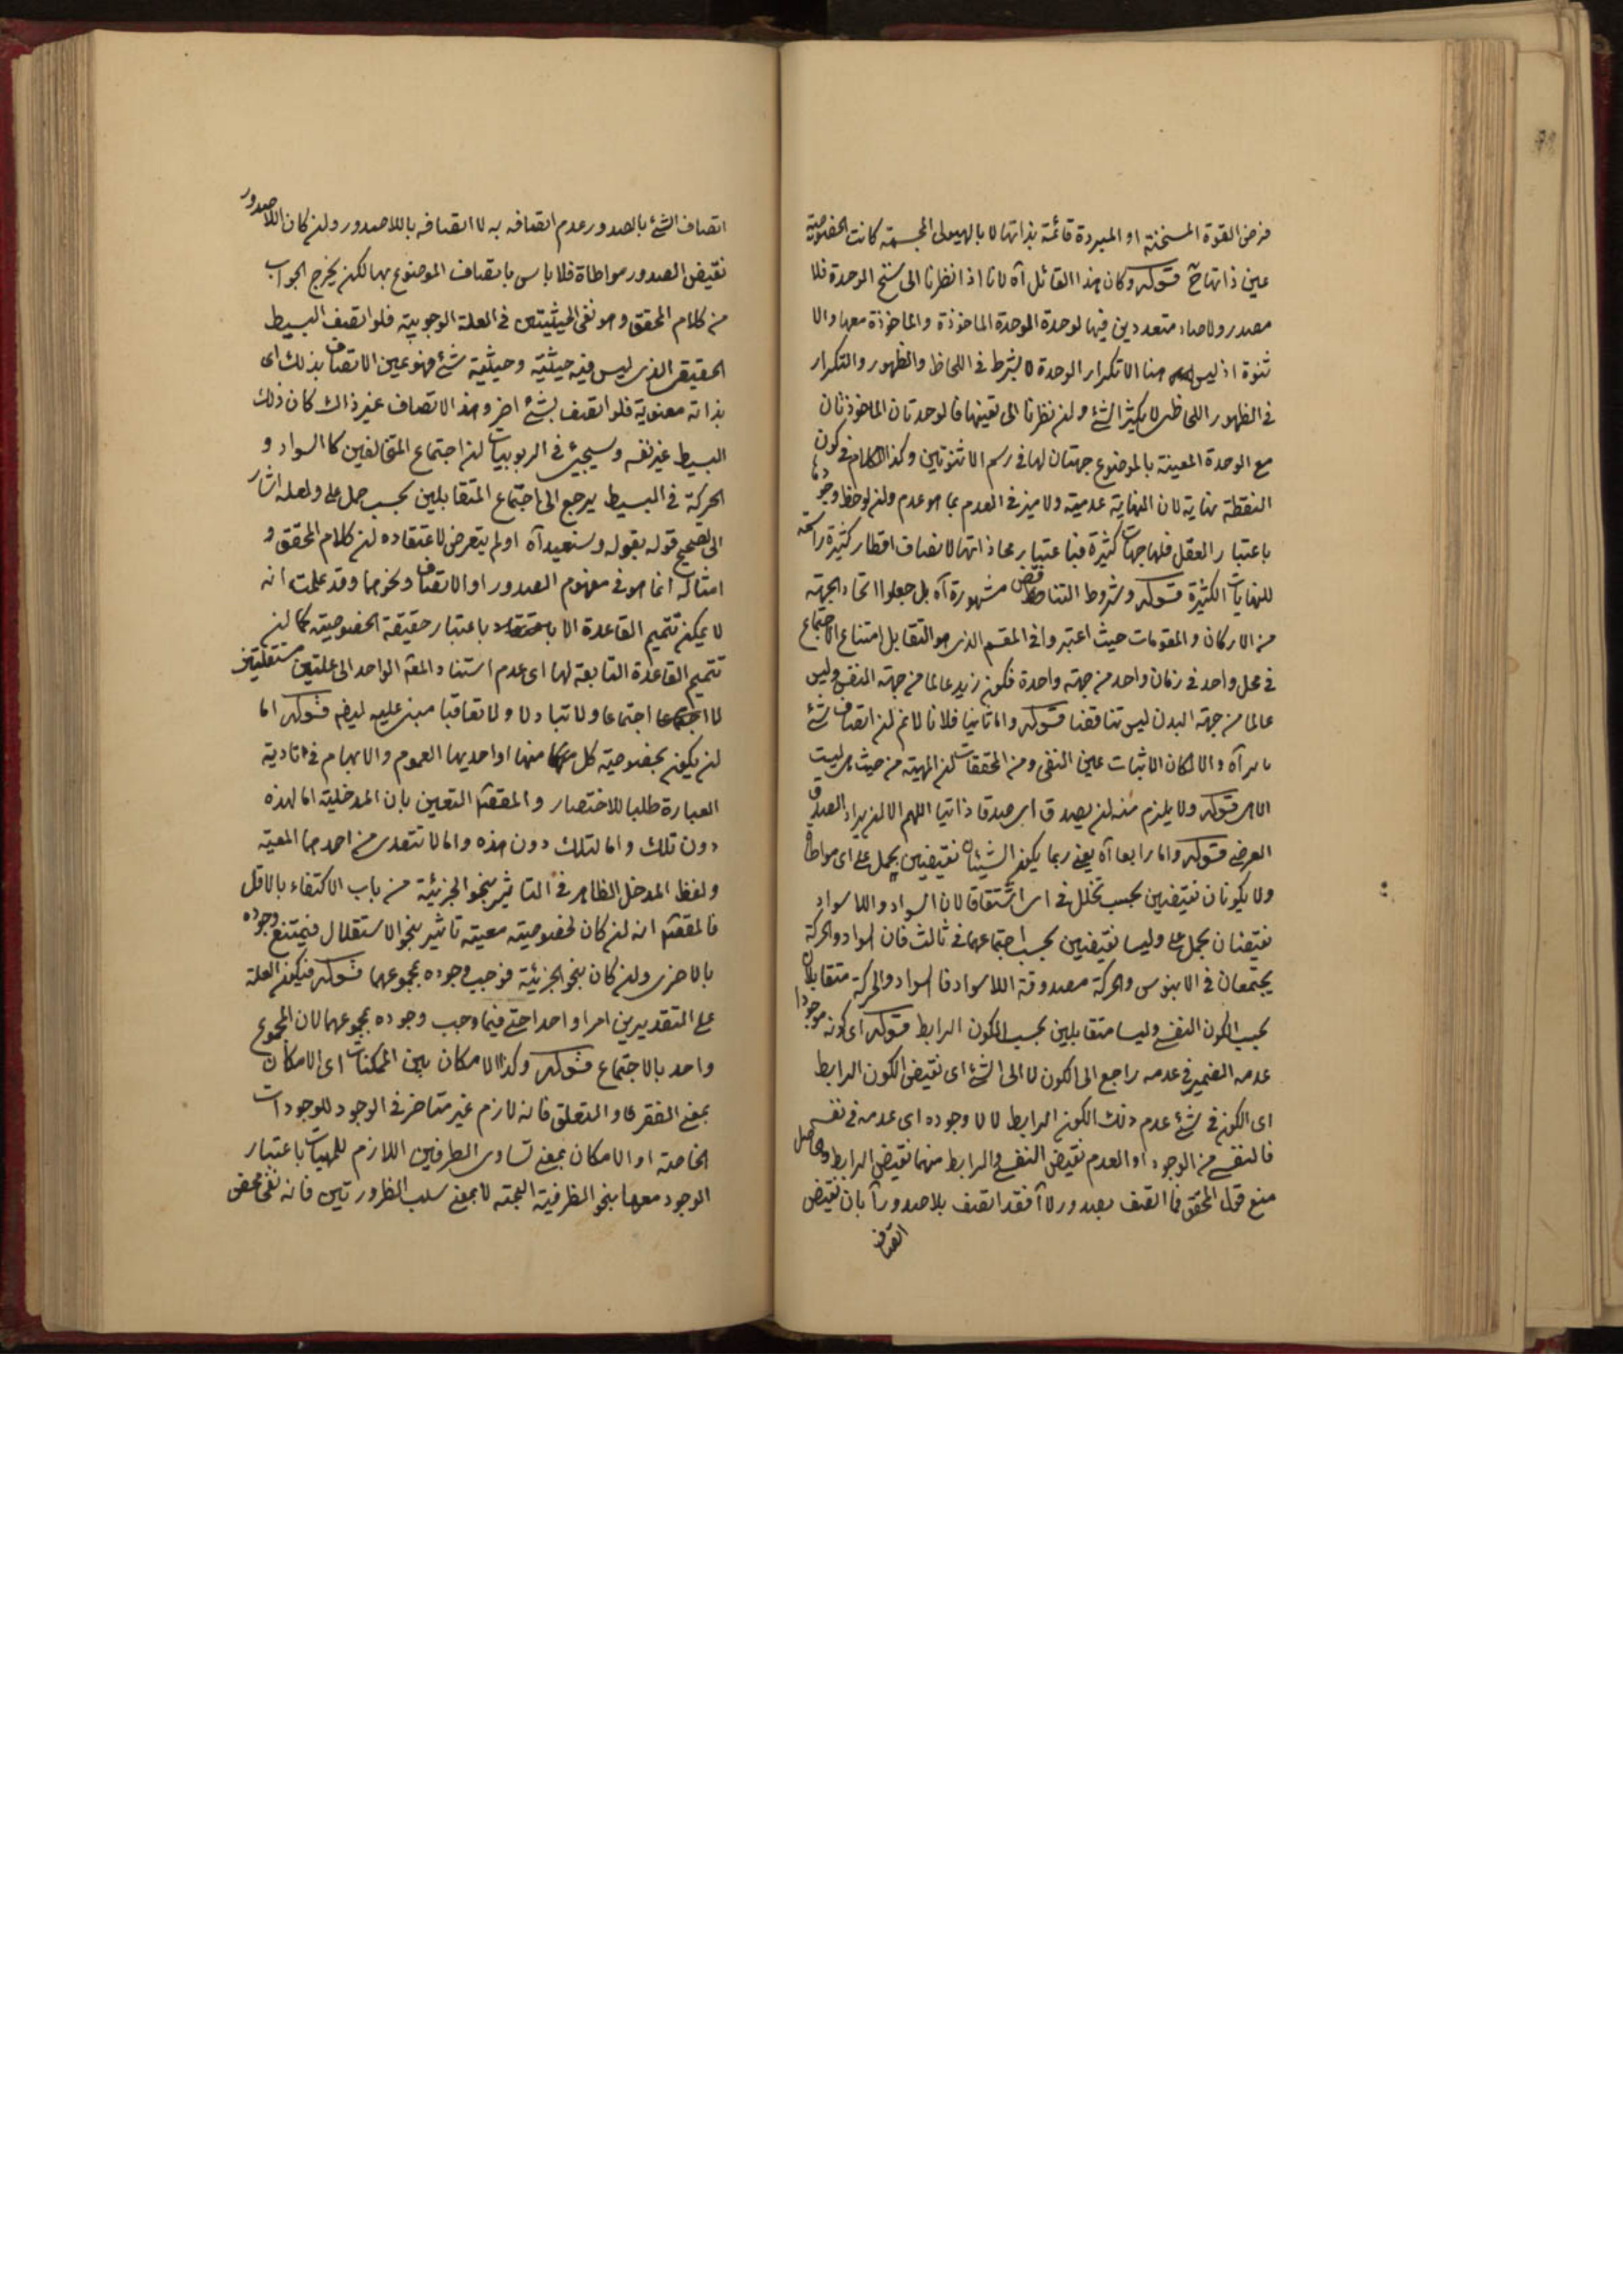 فرض القوة المسخنة او المبردة قائمة بذاتها لا بالهيولى المجسمة كانت الخصوصية
عين ذاتها ح قوله وكان هذا القائل آه لانا اذا نظرنا الى سنخ الوحدة فلا
مصدر ولا صاد متعددين فيها لوحدة الوحدة الماخوذة والماخوذة معها والا
ثنوة اذ ليس هنا الا تكرار الوحدة لا بشرط فى اللحاظ والظهور والتكرار
فى الظهور اللحاظى لا يكثر الشئ ولئن نظرنا الى تعينها فالوحدتان الماخوذتان
مع الوحدة المعينة بالموضوع جهتان لها فى رسم الاثنوتين وكذا الكلام فى كون
النقطة نهاية لان النهاية عدمية ولا ميز فى العدم بما هو عدم ولئن لوحظ وجودها
باعتبار العقل فلها جهات كثيرة فباعتبار محاذاتها لانصاف اقطار كثيرة راسمة
للنهايات الكثيرة قوله وشروط التناقض مشهورة آه بل جعلوا اتحاد الجهة
من الاركان والمقومات حيث اعتبروا فى المقسم الذى هو التقابل امتناع الاجتماع
فى محل واحد فى زمان واحد من جهة واحدة فكون زيد عالما من جهة النفس وليس
عالما من جهة البدن ليس تناقضا قوله واما ثانيا فلانا لانم ان اتصاف شئ
بامر آه والا لكان الاثبات عين النفى ومن المحققات ان المهية من حيث هى ليست
الا هى قوله ولا يلزم منه ان يصدق اى صدقا ذاتيا اللهم الا ان يراد الصدق
العرضى قوله واما رابعا آه يعنى ربما يكون الشيئان نقيضين بحمل على اى مواطاة
ولا يكونان نقيضين بحسب تخلل فى اى اشتقاقا لان السواد واللاسواد
نقيضان بحمل على وليسا نقيضين بحسب اجتماعهما فى ثالث فان السواد والحركة
يجتمعان فى الابنوس والحركة مصدوقة اللاسواد فالسواد والحركة متقابلان
بحسب الكون النفسى وليسا متقابلين بحسب الكون الرابط قوله اى كونه موجودا
عدمه الضمير فى عدمه راجع الى الكون لا الى الشئ اى نقيض الكون الرابط
اى الكون فى شئ عدم ذلك الكون الرابط لا لا وجوده اى عدمه فى نفسه
فالنفسى من الوجود او العدم نقيض النفسى والرابط منهما نقيض الرابط وحاصل
منع قول المحقق فما اتصف بصدور لا آ فقد اتصف بلا صدور آ بان نقيض
اتصاف
اتصاف الشئ بالصدور عدم اتصافه به لا اتصافه باللاصدور ولئن كان اللاصدور
نقيض الصدور مواطاة فلا باس باتصاف الموضوع بهما لكن يخرج الجواب
من كلام المحقق وهو نفى الحيثيتين فى العلة الوجوبية فلو اتصف البسيط
الحقيقى الذى ليس فيه حيثية وحيثية شئ فهو عين الاتصاف بذلك اى
بذاته معنوية فلو اتصف بشئ اخر وهذا الاتصاف غير ذاك كان ذلك
البسيط غير نفسه وسيجئ فى الربوبيات ان اجتماع المتخالفين كالسواد و
الحركة فى البسيط يرجع الى اجتماع المتقابلين بحسب حمل على ولعله اشار
الى تصحيح قوله بقوله وسنعيد آه او لم يتعرض لاعتقاده ان كلام المحقق و
امثاله انما هو فى مفهوم الصدور او الاتصاف ونحوهما وقد علمت انه
لا يمكن تتميم القاعدة الا باعتبار حقيقة الخصوصية كما ان
تتميم القاعدة التابعة لها اى عدم استناد المعه الواحد الى علتين مستقلتين
لا اجتماعا ولا تبادلا ولا تعاقبا مبنى عليه ايضه قوله اما
ان يكون بخصوصية كل منهما او احديهما العموم والابهام فى تادية
العبارة طلبا للاختصار والمقصم التعين بان المدخلية اما لهذه
دون تلك واما لتلك دون هذه واما لا تتعدى من احدهما المعية
ولفظ المدخل الظاهر فى التاثير بنحو الجزئية من باب الاكتفاء بالاقل
فالمقصم انه ان كان لخصوصية معية تاثير بنحو الاستقلال فيمتنع وجوده
بالاخرى ولئن كان بنحو الجزئية فوجب وجوده بمجموعهما قوله فيكون العلة
على التقديرين امرا واحدا حتى فيما وجب وجوده بمجموعهما لان المجموع
واحد بالاجتماع قوله وكذا الامكان بين الممكنات اى الامكان
بمعنى الفقر والتعلق فانه لازم غير متاخر فى الوجود للوجودات
الخاصة او الامكان بمعنى تساوى الطرفين اللازم للمهيات باعتبار
الوجود معها بنحو الظرفية البحتة لا بمعنى سلب الضرورتين فانه نفى محض